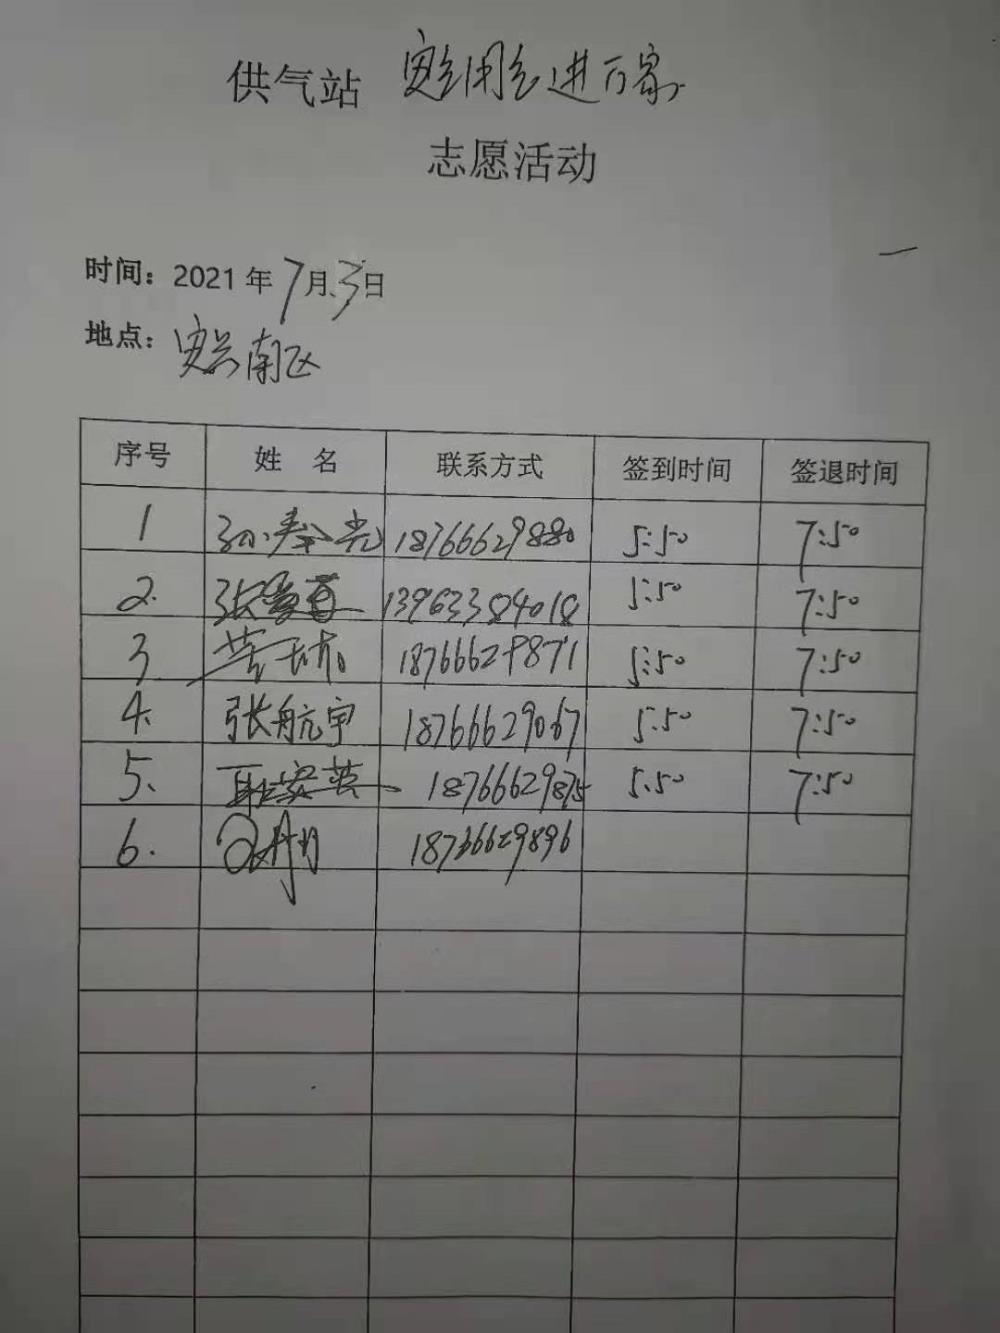 供气站 安全用气进万家
志愿活动
时间：2021年7月3日
地点：安兴南区
序号 姓 名 联系方式 签到时间 签退时间
1 孙奉光 18766629880 5:50 7:50
2. 13963384018 5:50 7:50
3 18766629871 5:50 7:50
4. 张航宇 18766629067 5:50 7:50
5. 18766629875 5:50 7:50
6. 18766629896